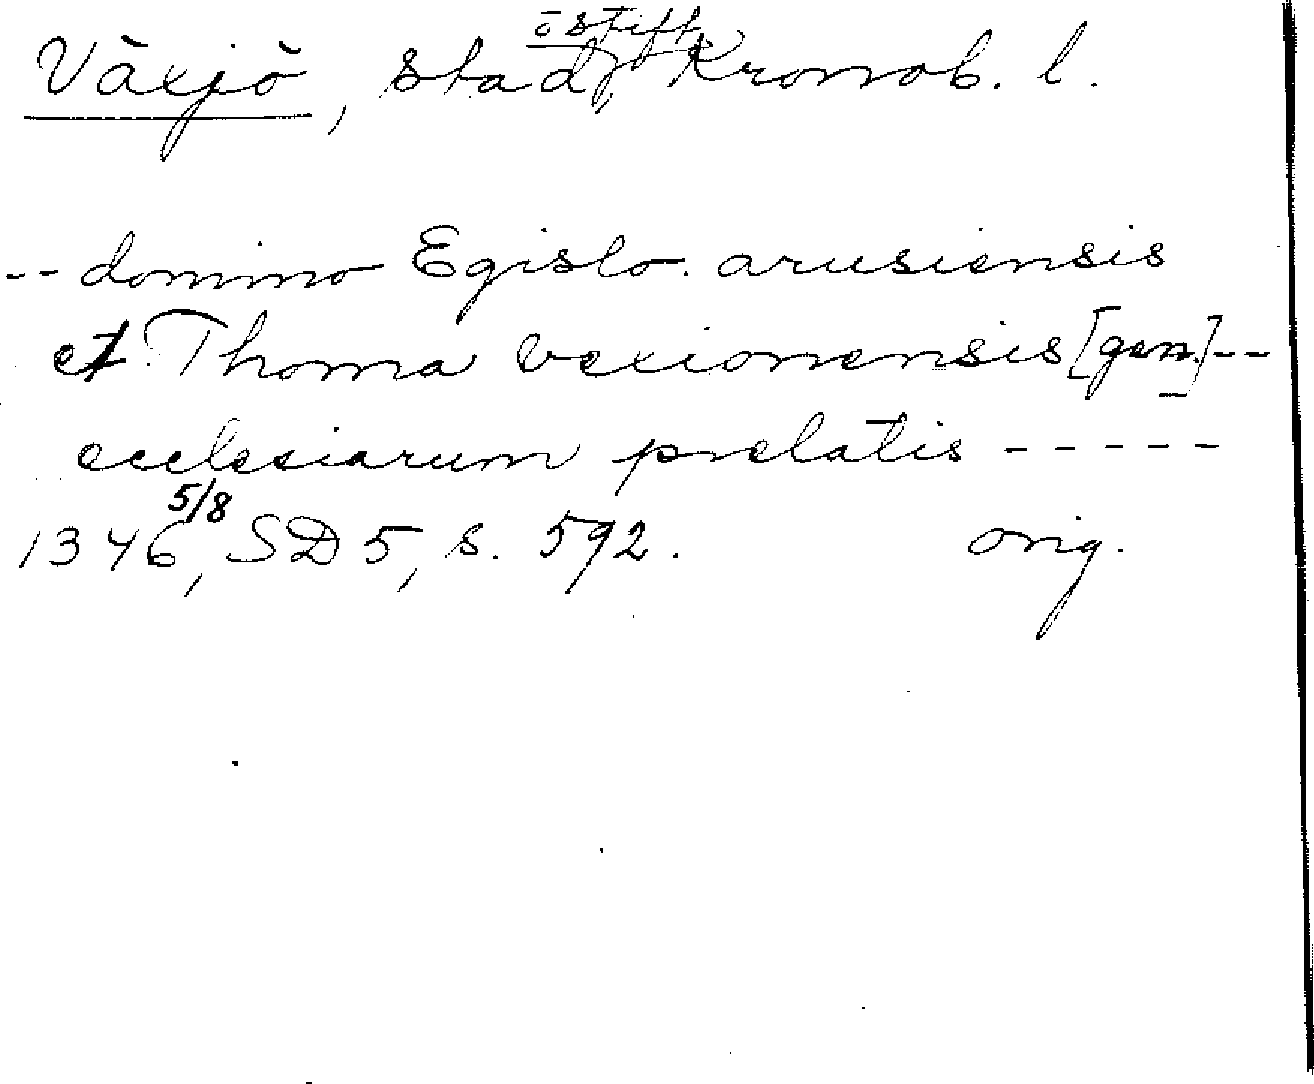 Växjö, stad, o stift, Kronob. l.
-- domino Egislo. arusiensis
et Thoma vexionensis [gen.] --
ecclesiarum prelatis -----
1346 5/8, SD 5, s. 592. orig.